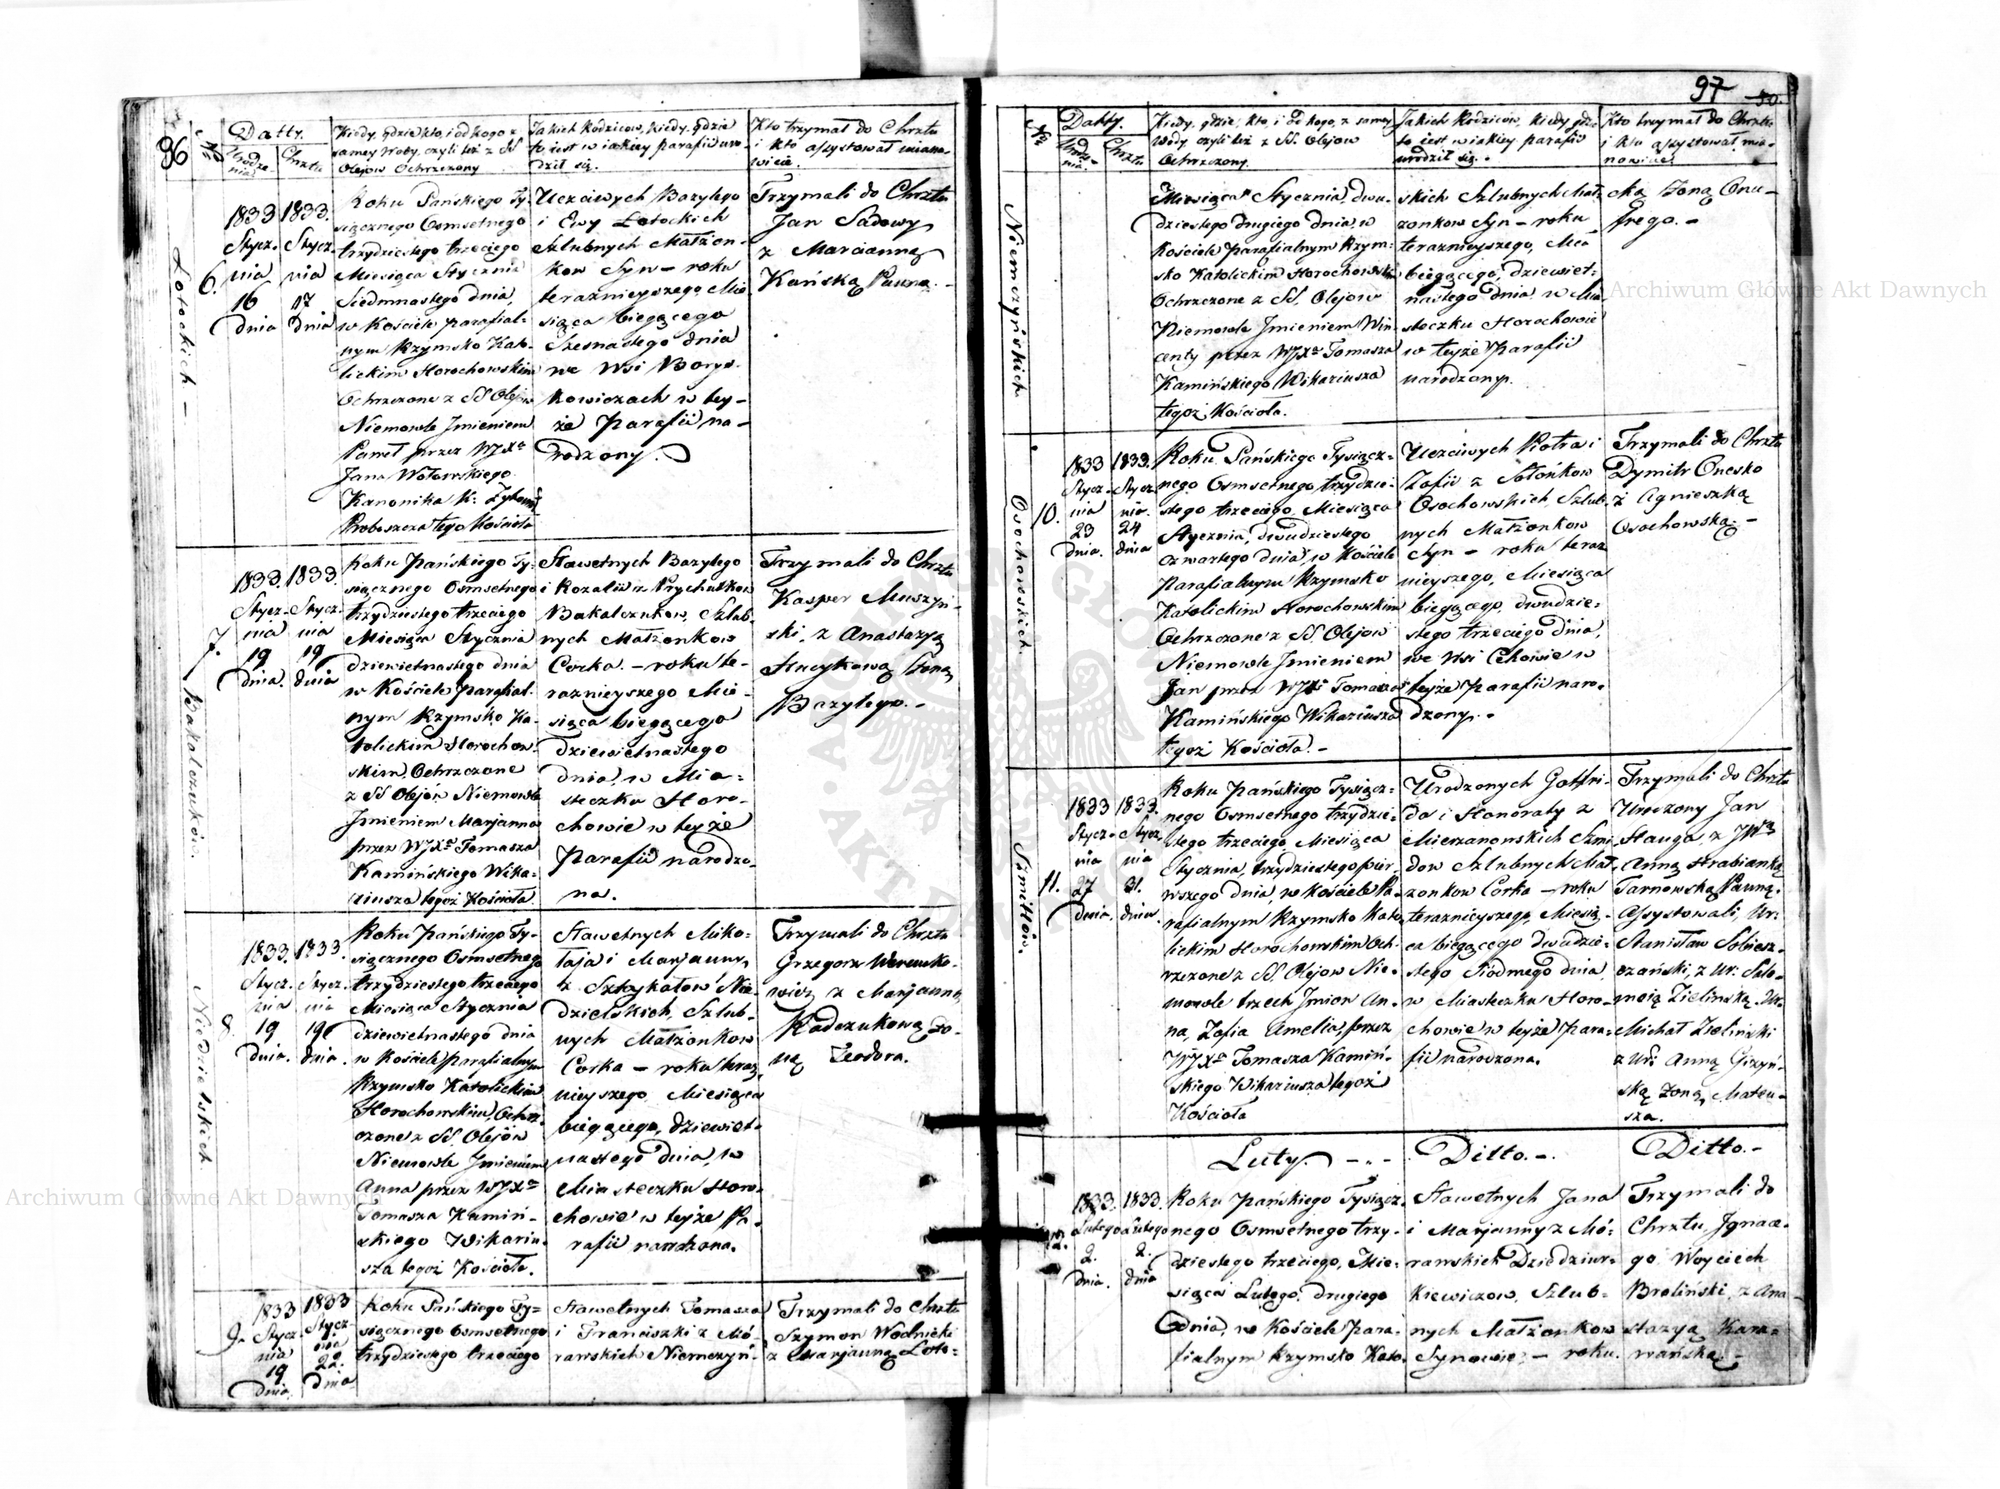 96
Nro
Datty.
Urodze
nia
Chrztu
Kiedy, gdzie, kto, i od kogo z
samey Wody, czyli też z SS.
Olejow Ochrzczony
Jakich Rodzicow, kiedy, gdzie
to iest w iakiey parafii uro-
dził się.
Kto trzymał do Chrztu
i kto assystował miano-
wicie.
Łotockich –
6.
1833
Stycz-
nia
16
dnia
1833.
Stycz-
nia
17
dnia
Roku Pańskiego Ty-
siącznego Osmsetnego
trzydziestego trzeciego
Miesiąca Stycznia
Siedmnastego dnia,
w Kościele parafial-
nym Rzymsko Kato-
lickim Horochowskim
Ochrzczone z SS Olejow
Niemowle Jmieniem
Paweł przez WJXa
Jana
Kanonika K.
Proboszcza tego Kościoła
Uczciwych Bazylego
i Ewy Łotockich
Szlubnych Małżon-
kow Syn – roku
teraznieyszego Mie-
siąca biegącego
Szesnastego dnia
we Wsi Borys-
kowiczach w tey-
że Parafii na-
rodzony.
Trzymali do Chrztu
Jan Sadowy
z Marcianną
Kańską Panną. –
Bakalczuków.
7.
1833.
Stycz-
nia
19
dnia.
1833.
Stycz-
nia
19
dnia
Roku Pańskiego Ty-
siącznego Osmsetnego
trzydziestego trzeciego
Miesiąca Stycznia
dziewietnastego dnia
w Kościele parafial-
nym Rzymsko Ka-
tolickim Horochow-
skim, Ochrzczone
z SS Olejow Niemowle
Jmieniem Marjanna
przez WJXa Tomasza
Kamińskiego Wika-
riusza tegoż Kościoła
Sławetnych Bazylego
i Rozalii z Prychutkow
Bakalczukow, Szlub-
nych Małżonkow
Corka – roku te-
raznieyszego Mie-
siąca biegącego
dziewietnastego
dnia, w Mia-
steczku Horo-
chowie w teyże
Parafii narodzo-
na.
Trzymali do Chrztu
Kasper Muszyń-
ski, z Anastazyą
Hucykową Żoną
Bazylego. –
Niedzielskich
8.
1833.
Stycz-
nia
19
dnia.
1833.
Stycz-
nia
19
dnia.
Roku Pańskiego Ty-
siącznego Osmsetnego
trzydziestego trzeciego
Miesiąca Stycznia
dziewietnastego dnia
w Kościele parafialnym
Rzymsko Katolickim
Horochowskim Ochrz-
czone z SS. Olejow
Niemowle Jmieniem
Anna przez WJXa
Tomasza Kamiń-
skiego Wikariu-
sza tegoż Kościoła.
Sławetnych Miko-
łaja i Marjanny
z Sztykałow Nie-
dzielskich, Szlub-
nych Małżonkow
Corka – roku teraz-
nieyszego Miesiąca
biegącego, dziewiet-
nastego dnia, w
Miasteczku Horo-
chowie w teyże Pa-
rafii narodzona.
Trzymali do Chrztu
Grzegorz Weremko-
wicz z Marjanną
Radczukową Żo-
ną Teodora.
9.
1833
Stycz-
nia
19
dnia
1833
Stycz-
nia
22.
dnia
Roku Pańskiego Ty-
siącznego Osmsetnego
trzydziestego trzeciego
Sławetnych Tomasza
i Franciszki z Mó-
rawskich Niemczyń-
Trzymali do Chrztu
Szymon Wodnicki
z Marjanną
97
50.
Nro
Datty.
Urodze-
nia
Chrztu
Kiedy, gdzie, kto, i od kogo, z samey
Wody czyli też z SS. Olejow
Ochrzczony.
Jakich Rodziców, kiedy gdzie
to iest w iakiey parafii
urodził się.
Kto trzymał do Chrztu
i kto assystował mia-
nowicie.
Niemczyńskich
Miesiąca Stycznia, dwu-
dziestego drugiego dnia, w
Kościele parafialnym Rzym-
sko Katolickim Horochowskim
Ochrzczone z SS. Olejow
Niemowle Jmieniem Win-
centy przez WJXa Tomasza
Kamińskiego Wikariusza
tegoż Kościoła.
skich Szlubnych Mał-
żonkow Syn – roku
teraznieyszego, Mie-
biegącego, dziewiet-
nastego dnia w Mia-
steczku Horochowie
w teyże Parafii
narodzony.
cką Żoną Onu-
frego. –
Osochowskich
10.
1833
Stycz-
nia
23
dnia.
1833.
Stycz-
nia.
24
dnia
Roku Pańskiego Tysiącz-
nego Osmsetnego, trzydzie-
stego trzeciego Miesiąca
Stycznia, dwudziestego
czwartego dnia, w Kościele
Parafialnym Rzymsko
Katolickim Horochowskim
Ochrzczone z SS. Olejow
Niemowle Jmieniem
Jan przez WJXa Tomasza
Kamińskiego Wikariusza
tegoż Kościoła. –
Uczciwych Piotra i
Zofii z Sołońkow
Osochowskich, Szlub-
nych Małżonkow
Syn – roku teraz
nieyszego, Miesiąca
biegącego, dwudzie-
stego trzeciego dnia,
we Wsi Cehowie w
teyże Parafii naro-
dzony. –
Trzymali do Chrztu
Dymitr Onesko
z Agnieszką
Osochowską. –
Szmittów.
11.
1833
Stycz-
nia
27
dnia.
1833.
Stycz-
nia
31.
dnia.
Roku Pańskiego Tysiącz-
nego Osmsetnego trzydzie-
stego trzeciego Miesiąca
Stycznia, trzydziestego pier-
wszego dnia, w Kościele Pa-
rafialnym Rzymsko Kato-
lickim Horochowskim Och-
rzczone z SS. Olejow Nie-
mowle trzech Jmion An-
na, Zofia Amelia, przez
WJXa Tomasza Kamiń-
skiego Wikariusza tegoż
Kościoła
Urodzonych Gotfri-
da i Honoraty z
Mierzanowskich Szmi-
dow Szlubnych Mał-
żonkow Corka – roku
teraznieyszego, Miesią-
ca biegącego dwudzie-
stego Siódmego dnia,
w Miasteczku Horo-
chowie w teyże Para-
fii narodzona.
Trzymali do Chrztu
Urodzony Jan
Hauga, z JWą
Anną Hrabianką
Tarnowską Panną.
Assystowali, Ur:
Stanisław Sobiesz-
czański, z Ur: Salo-
meią Zielinską. Ur.
Michał Zieliński
z Ur: Anną Gizyń-
ską Żoną Mateu-
sza.
Luty. – . –
Ditto. –
Ditto. –
12.
1833.
Lutego
2.
dnia.
1833.
Lutego
2.
dnia
Roku Pańskiego Tysiącz-
nego Osmsetnego trzy-
dziestego trzeciego, Mie-
siąca Lutego, drugiego
dnia, w Kościele Para-
fialnym Rzymsko Kato-
Sławetnych Jana
i Marjanny z Mó-
rawskich Dziedziur-
kiewiczow, Szlub-
nych Małżonkow
Synowie, – roku
Trzymali do
Chrztu, Jgnace-
go Woyciech
Broliński, z Ana-
stazyą Kara-
wańską. –
Archiwum Główne Akt Dawnych
Archiwum Główne Akt Dawnych